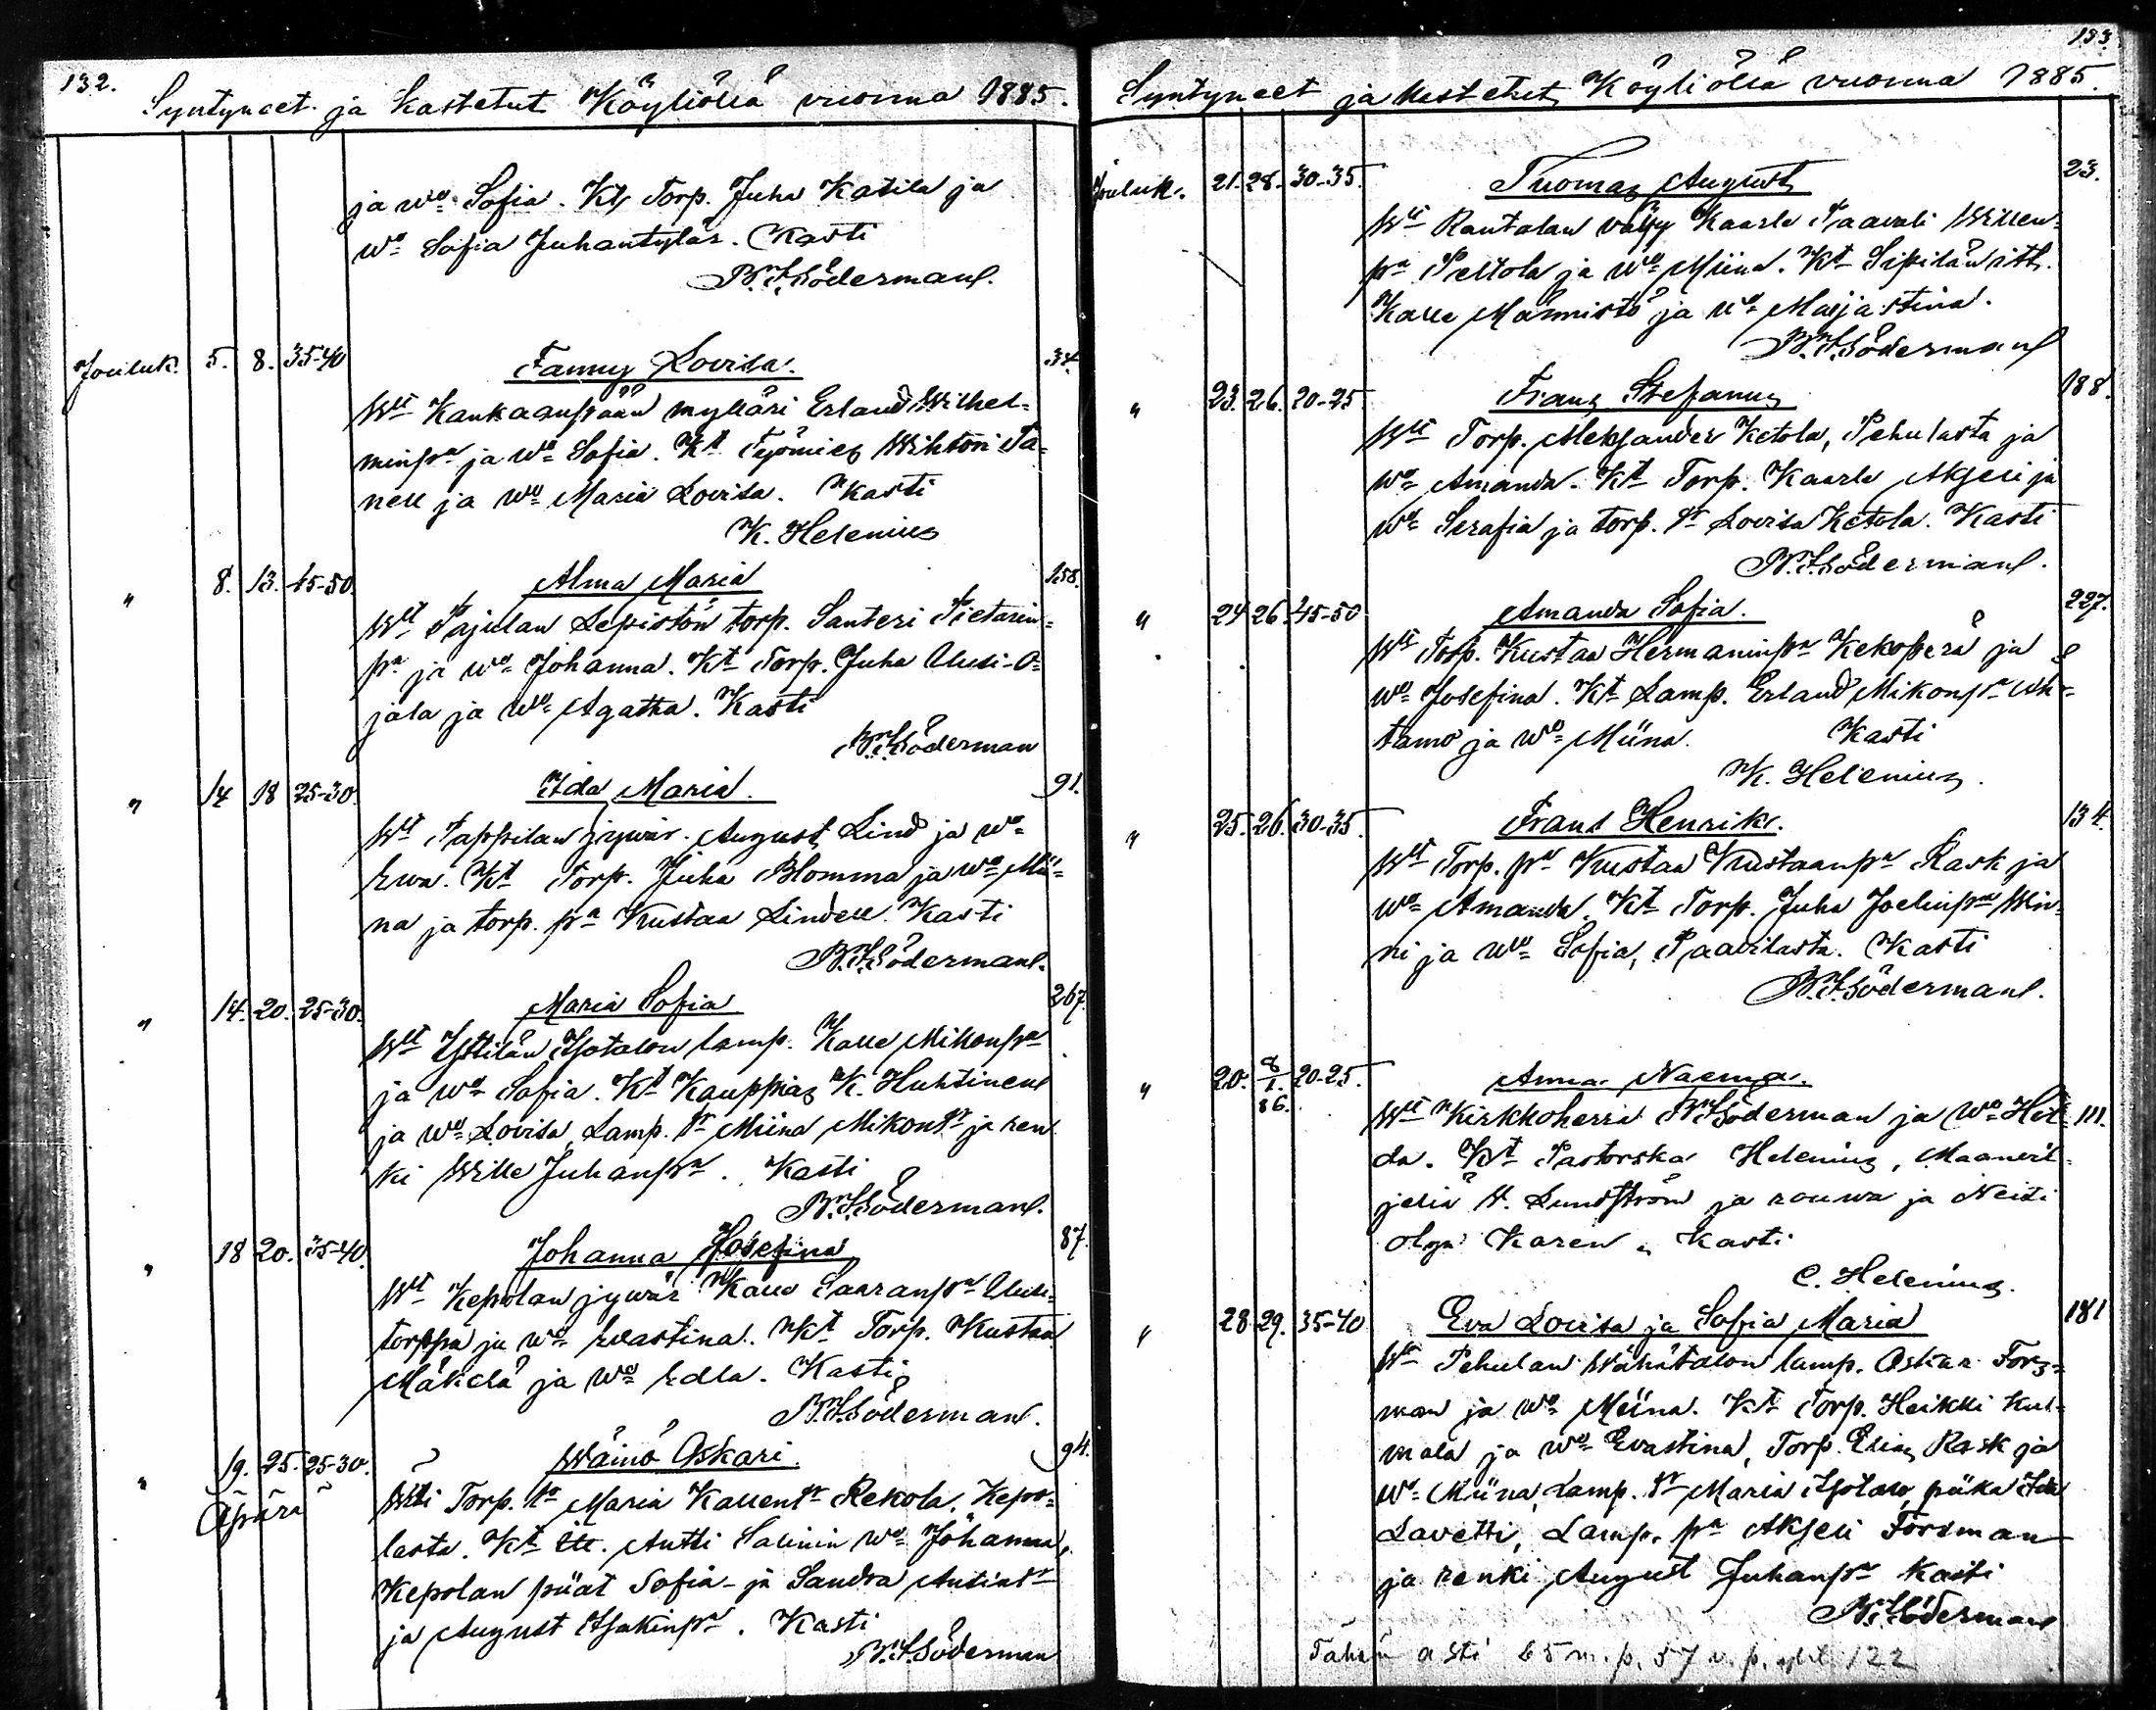 132.
Syntyneet ja kastetut Köyliössä vuonna 1885.
ja wo Sofia. Kt Torp. Juha Katila ja
wo Sofia Juhantytär. Kasti
B. F. Söderman.
Jouluk. 5. 8. 35-40 Fanny Lovisa. 34.
Wt Kankaanpään mylläri Erland Wilhel=
minpa ja wo Sofia. Kt Työmies Wihtori Ta=
nell ja wo Maria Lovisa. Kasti
K. Helenius
" 8. 13. 45-50. Alma Maria 158.
Wt Pajulan Lepistön torp. Santeri Pietarin=
pa ja wo Johanna. Kt Torp. Juha Uusi-O=
jala ja wo Agatha. Kasti
B. F. Söderman
" 14 18 25-30. Ida Maria. 91.
Wt Pappilan jyvär. August Lind ja wo
Ewa. Kt Torp. Juha Blomma ja wo Mii=
na ja torp. pa Kustaa Lindell. Kasti
B. F. Söderman.
" 14. 20. 25-30. Maria Sofia 267.
Wt Yttilän Isotalon lamp. Kalle Mikonpa
ja wo Sofia. Kt Kauppias K. Huhtinen
ja wo Lovisa, Lamp. tr Miina Mikontr ja ren
ki Wille Juhanpa. Kasti
B. F. Söderman.
" 18 20. 35-40. Johanna Josefina 87.
Wt Kepolan jyvär Kalle Saaranpa Uusi=
torppa ja wo Evastina. Kt Torp. Kustaa
Mäkelä ja wo Edla. Kasti
B. F. Söderman.
" 19. 25. 25-30. Wäinö Oskari. 94.
Äpärä Wti Torp. tr Maria Kallentr Rekola, Kepo=
lasta. Kt itt. Antti Salinin wo Johanna,
Kepolan piiat Sofia- ja Sandra Antintr
ja August Isakinpa. Kasti
B. F. Söderman
133
Syntyneet ja kastetut Köyliössä vuonna 1885.
Jouluk. 21. 28. 30-35. Thomas August 23.
Wti Rantalan Kaarle Paavali Willen=
pa Peltola ja wo Miina. Kt Sipilän itt.
Kalle Männistö ja wo Majastina.
B. F. Söderman
" 23. 26. 20-25 Frans Stefanus 188.
Wti Torp. Aleksander Ketola, Pehulasta ja
wo Amanda. Kt Torp. Kaarle Akseli ja
wo Serafia ja torp. tr Lovisa Ketola. Kasti
B. F. Söderman.
" 24 26. 45-50 Amanda Sofia. 227.
Wti Torp. Kustaa Hermaninpa Kekoperä ja
wo Josefina. Kt Lamp. Erland Mikonpa Un=
tamo ja wo Miina. Kasti
K. Helenius.
" 25. 26. 30-35. Frans Henrik. 134.
Wti Torp. pa Kustaa Kustaanpa Rask ja
wo Amanda. Kt Torp. Juha Joelinpa Win=
ni ja wo Sofia, Paavilasta. Kasti
B. F. Söderman.
" 20. 8/1. 86. 20-25. Anna Naema.
Wti Kirkkoherra B. F. Söderman ja wo Hil= 111.
da. Kt Pastorska Helenius, Maanvil=
jeliä A. Lundström ja rouwa ja Neiti
Olga Karen. Kasti
C. Helenius.
" 28 29. 35-40 Eva Lovisa ja Sofia Maria 181
Wti Pehulan Wähätalon lamp. Oskar Fors=
man ja wo Miina. Kt Torp. Heikki Kul=
mala ja wo Evastina, Torp. Elias Rask ja
wo Miina, Lamp. tr Maria Isotalo, piika Ida
Lavetti, Lamp. pa Akseli Forsman
ja renki August Juhanpa Kasti
B. F. Söderman
Tähän asti 65 m.p. 57 v.p. yht. 122